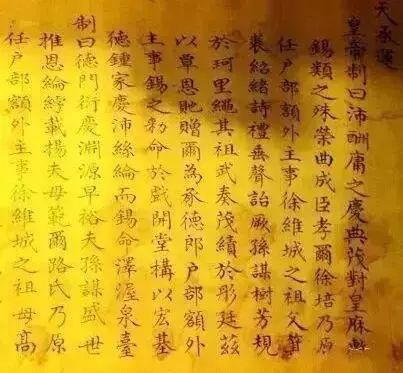 天承運
皇帝制曰沛酬庸之慶典茂對皇庥
錫類之殊榮曲成臣孝爾徐培乃原
任户部額外主事徐維城之祖父箕
裘紹緒詩禮垂聲詒厥孫謀樹芳規
於珂里繩其祖武奏茂績於彤廷茲
以覃恩貤贈爾為承德郎户部額外
主事錫之勅命於戲開堂構以宏基
德鍾家慶沛絲綸而錫命澤渥泉臺
制曰德門衍慶淵源早裕夫孫謀盛世
推恩綸綍載揚夫母範爾路氏乃原
任户部額外主事徐維城之祖母高